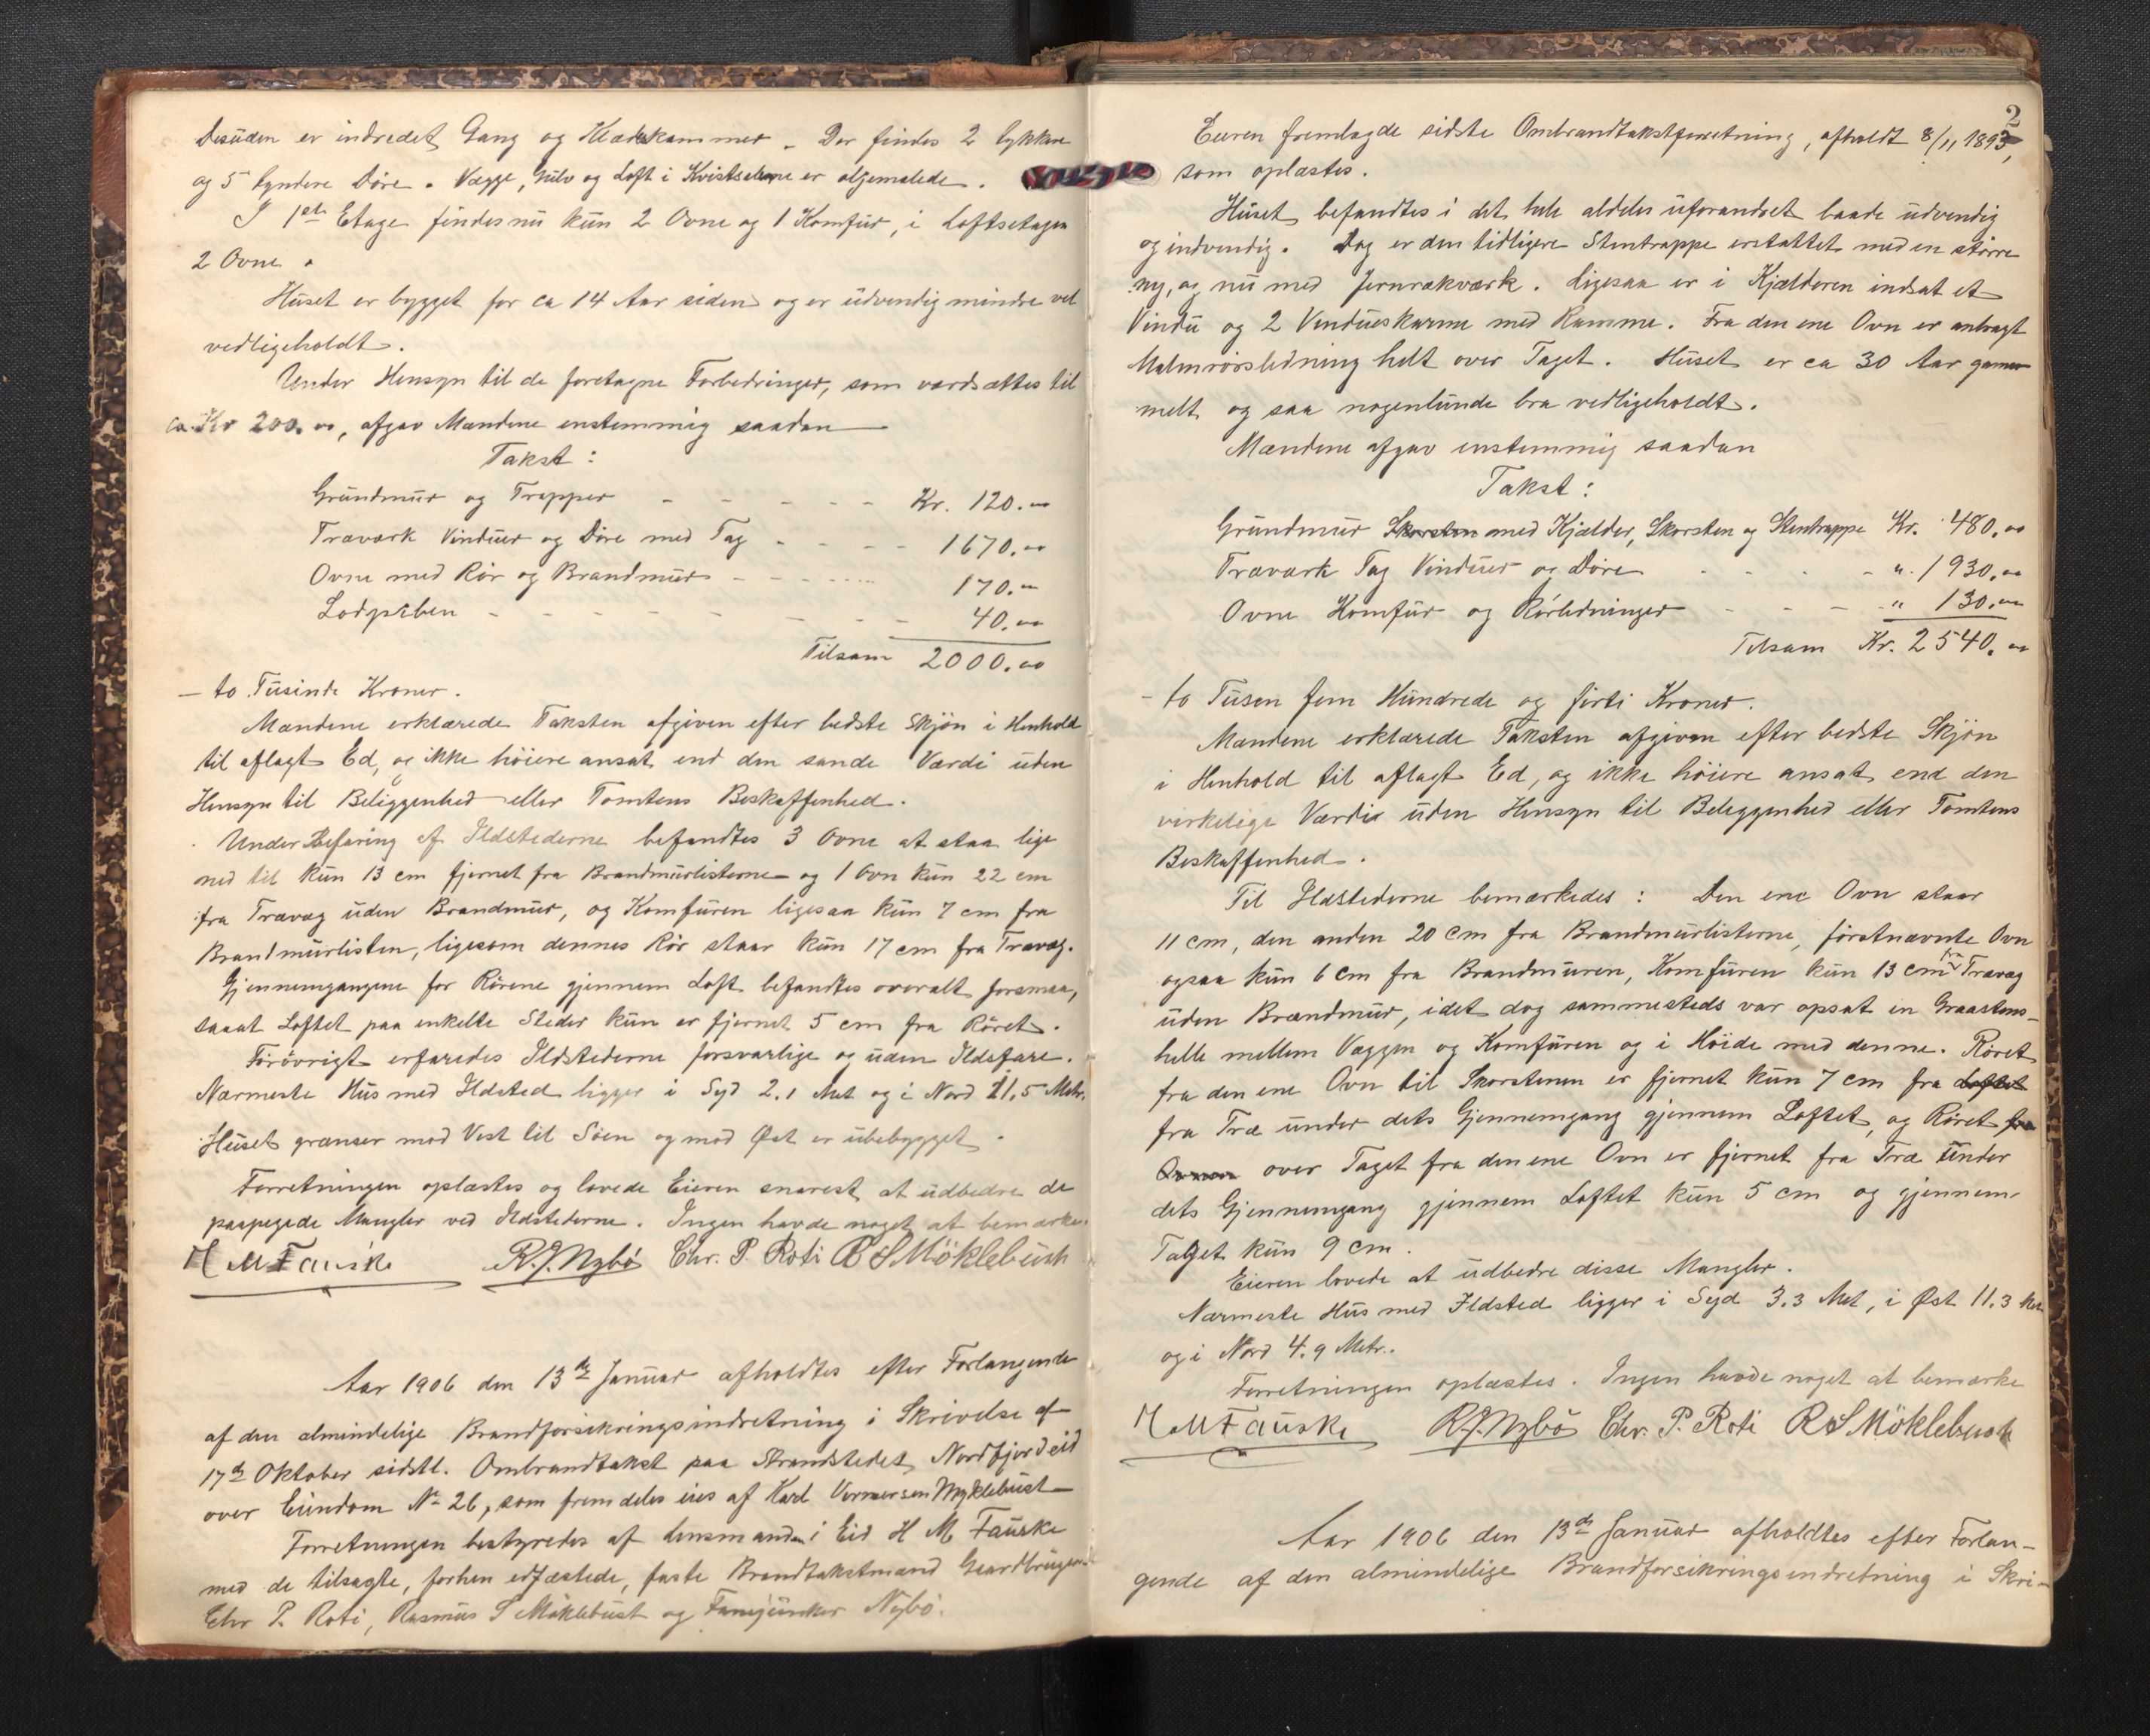 Desuden er indredet Gang og Klædekammer. Der findes 2 tykkere
og 5 tyndere Døre. Vægge, Gulv og Loft i Kvistsalene er oljemalede.
I 1ste Etage findes nu kun 2 Ovne og 1 Komfur, i Loftsetagen
2 Ovne.
Huset er bygget for ca 14 Aar siden og er udvendig mindre vel
vedligeholdt.
Under Hensyn til de foretagne Forbedringer, som værdsættes til
ca Kr 200.00, afgav Mændene enstemmig saadan
Takst:
Grundmur og Trapper - - - - - Kr. 120.00
Træværk Vinduer og Døre med Tag - - - - 1670.00
Ovne med Rør og Brandmur - - - - 170.00
Lodpiben - - - - - - - 40.00
Tilsam 2000.00
- to Tusinde Kroner.
Mændene erklærede Taksten afgiven efter bedste Skjøn i Henhold
til aflagt Ed, og ikke høiere ansat end den sande Værdi uden
Hensyn til Beliggenhed eller Tomtens Beskaffenhed.
Under Befaring af Ildstederne befandtes 3 Ovne at staa lige
ned til kun 13 cm fjernet fra Brandmurlisterne og 1 Ovn kun 22 cm
fra Trævæg uden Brandmur, og Komfuren ligesaa kun 7 cm fra
Brandmurlisten, ligesom dennes Rør staar kun 17 cm fra Trævæg.
Gjennemgangene for Rørene gjennem Loft befandtes overalt forsmaa,
saaat Loftet paa enkelte Steder kun er fjernet 5 cm fra Røret.
Forøvrigt erfaredes Ildstederne forsvarlige og uden Ildsfare.
Nærmeste Hus med Ildsted ligger i Syd 2.1 Met og i Nord 11,5 Metr.
Huset grænser mod Vest til Søen og mod Øst er ubebygget.
Forretningen oplæstes og lovede Eieren snarest at udbedre de
paapegede Mangler ved Ildstederne. Ingen havde noget at bemærke.
H M Fauske R. J. Nybø Chr. P. Roti R S Möklebust
Aar 1906 den 13de Januar afholdtes efter Forlangende
af den almindelige Brandforsikringsindretning i Skrivelse af
17de Oktober sidstl. Ombrandtakst paa Strandstedet Nordfjordeid
over Eiendom No 26, som fremdeles eies af Karl Vernersen Myklebust
Forretningen bestyredes af Lensmanden i Eid H M Fauske
med de tilsagte, forhen edfæstede, faste Brandtakstmænd Gaardbruger
Chr P. Roti, Rasmus S Möklebust og Fanejunker Nybø.
2
Eieren fremlagde sidste Ombrandtakstforretning, afholdt 8/11 1893,
som oplæstes.
Huset befandtes i det hele aldeles uforandret baade udvendig
og indvendig. Dog er den tidligere Stentrappe erstattet med en større
ny, og nu med Jernrækværk. Ligesaa er i Kjælderen indsat et
Vindu og 2 Vindueskarme med Ramme. Fra den ene Ovn er anbragt
Malmrørsledning helt over Taget. Huset er ca 30 Aar gam-
melt og saa nogenlunde bra vedligeholdt.
Mændene afgav enstemmig saadan
Takst:
Grundmur Skorsten med Kjælder, Skorsten og Stentrappe Kr. 480.00
Træværk Tag Vinduer og Døre - - - - " 1930.00
Ovne Komfur og Rørledninger - - - " 130.00
Tilsam Kr. 2540.00
- to Tusen fem Hundrede og firti Kroner.
Mændene erklærede Taksten afgiven efter bedste Skjøn
i Henhold til aflagt Ed, og ikke høiere ansat end den
virkelige Værdie uden Hensyn til Beliggenhed eller Tomtens
Beskaffenhed.
Til Ildstederne bemærkedes: Den ene Ovn staar
11 cm, den anden 20 cm fra Brandmurlisterne, førstnævnte Ovn
ogsaa kun 6 cm fra Brandmuren, Komfuren kun 13 cm fra Trævæg
uden Brandmur, idet dog sammesteds var opsat en Graastens-
helle mellem Væggen og Komfuren og i Høide med denne. Røret
fra den ene Ovn til Skorstenen er fjernet kun 7 cm fra Loftet
fra Træ under dets Gjennemgang gjennem Loftet, og Røret fra
Ovnen over Taget fra den ene Ovn er fjernet fra Træ under
dets Gjennemgang gjennem Loftet kun 5 cm og gjennem
Taget kun 9 cm.
Eieren lovede at udbedre disse Mangler.
Nærmeste Hus med Ildsted ligger i Syd 3.3 Met, i Øst 11.3 Met
og i Nord 4.9 Metr.
Forretningen oplæstes. Ingen havde noget at bemærke
H M Fauske R. J. Nybø Chr. P. Roti R S Möklebust
Aar 1906 den 13de Januar afholdtes efter Forlan-
gende af den almindelige Brandforsikringsindretning i Skri-